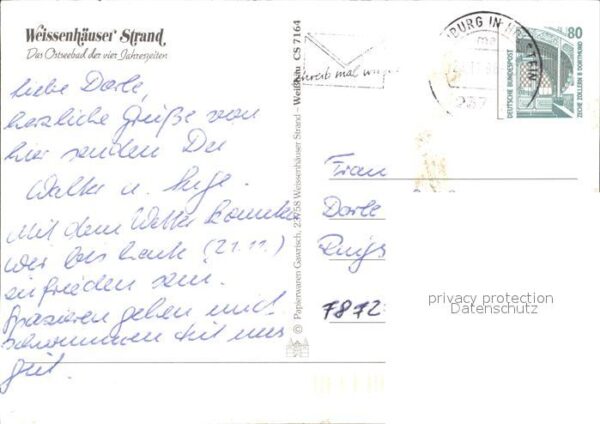 Weissenhäuser Strand
Das Ostseebad der vier Jahreszeiten
Liebe Dorle,
herzliche Grüße von
hier senden Dir
Walter u. Inge.
Mit dem Wetter konnten
wir bis heute (21.11.)
zufrieden sein.
Spazieren gehen und
schwimmen tut uns
gut.
© Papierwaren Gaserisch, 23758 Weissenhäuser Strand - Weißhäu CS 7164
Schreib mal wieder
BURG IN HOLSTEIN
237
80
DEUTSCHE BUNDESPOST
ZECHE ZOLLERN II DORTMUND
Frau
Dorle
Rings
7872
privacy protection
Datenschutz